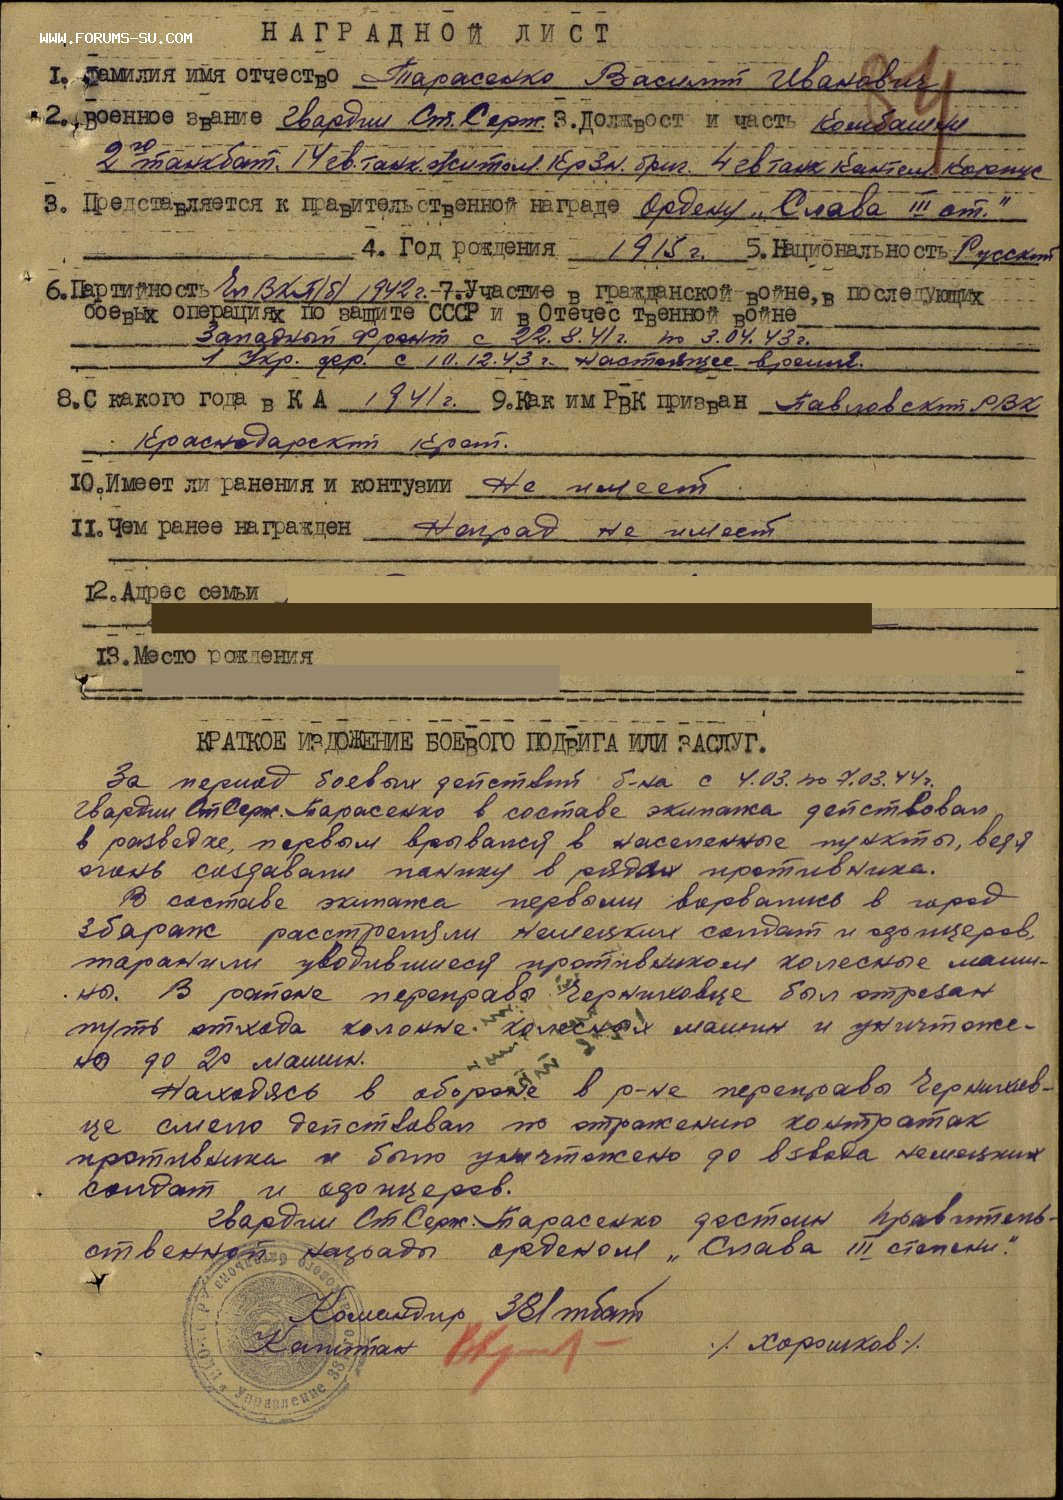 WWW.FORUMS-SU.COM
НАГРАДНОЙ ЛИСТ
1. Фамилия имя отчество Тарасенко Василий Иванович
84
2. Военное звание Гвардии Ст. Серж. 3. Должност и часть Комбашни
2го танкбат. 14 гв. танк. Житом. КрЗн. бриг. 4 гв танк Кантем. Корпус
3. Представляется к правительственной награде Ордену „Слава III ст."
4. Год рождения 1915 г. 5. Национальность Русский
6. Партийность Чл ВКП/б/ 1942 г. 7. Участие в гражданской войне, в последующих
боевых операциях по защите СССР и в Отечес твенной войне
Западный фронт с 22.8.41 г. по 3.04.43 г.
1 Укр. фр. с 10.12.43 г. настоящее время.
8. С какого года в К А 1941 г. 9. Как им РВК призван Павловский РВК
Краснодарский край.
10. Имеет ли ранения и контузии Не имеет.
11. Чем ранее награжден Наград не имеет
12. Адрес семьи
13. Место рождения
КРАТКОЕ ИЗДОЖЕНИЕ БОЕВОГО ПОДВИГА ИЛИ ЗАСЛУГ.
За период боевых действий б-на с 4.03. по 7.03.44 г.
гвардии Ст Серж. Тарасенко в составе экипажа действовал
в разведке, первым врывался в населенные пункты, ведя
огонь создавали панику в рядах противника.
В составе экипажа первыми ворвались в город
Збараж расстреляли немецких солдат и офицеров,
таранили уводившиеся противником колесные маши-
ны. В районе переправы Черниховце был отрезан
путь отхода колонне колесных машин и уничтоже-
но до 20 машин.
Находясь в обороне в р-не переправы Чернихов-
це смело действовал по отражению контратак
противника и было уничтожено до взвода немецких
солдат и офицеров.
Гвардии Ст Серж. Тарасенко достоин правитель-
ственной награды орденом „Слава III степени".
Командир 381 тбат
Капитан /Хорошков/
Управление